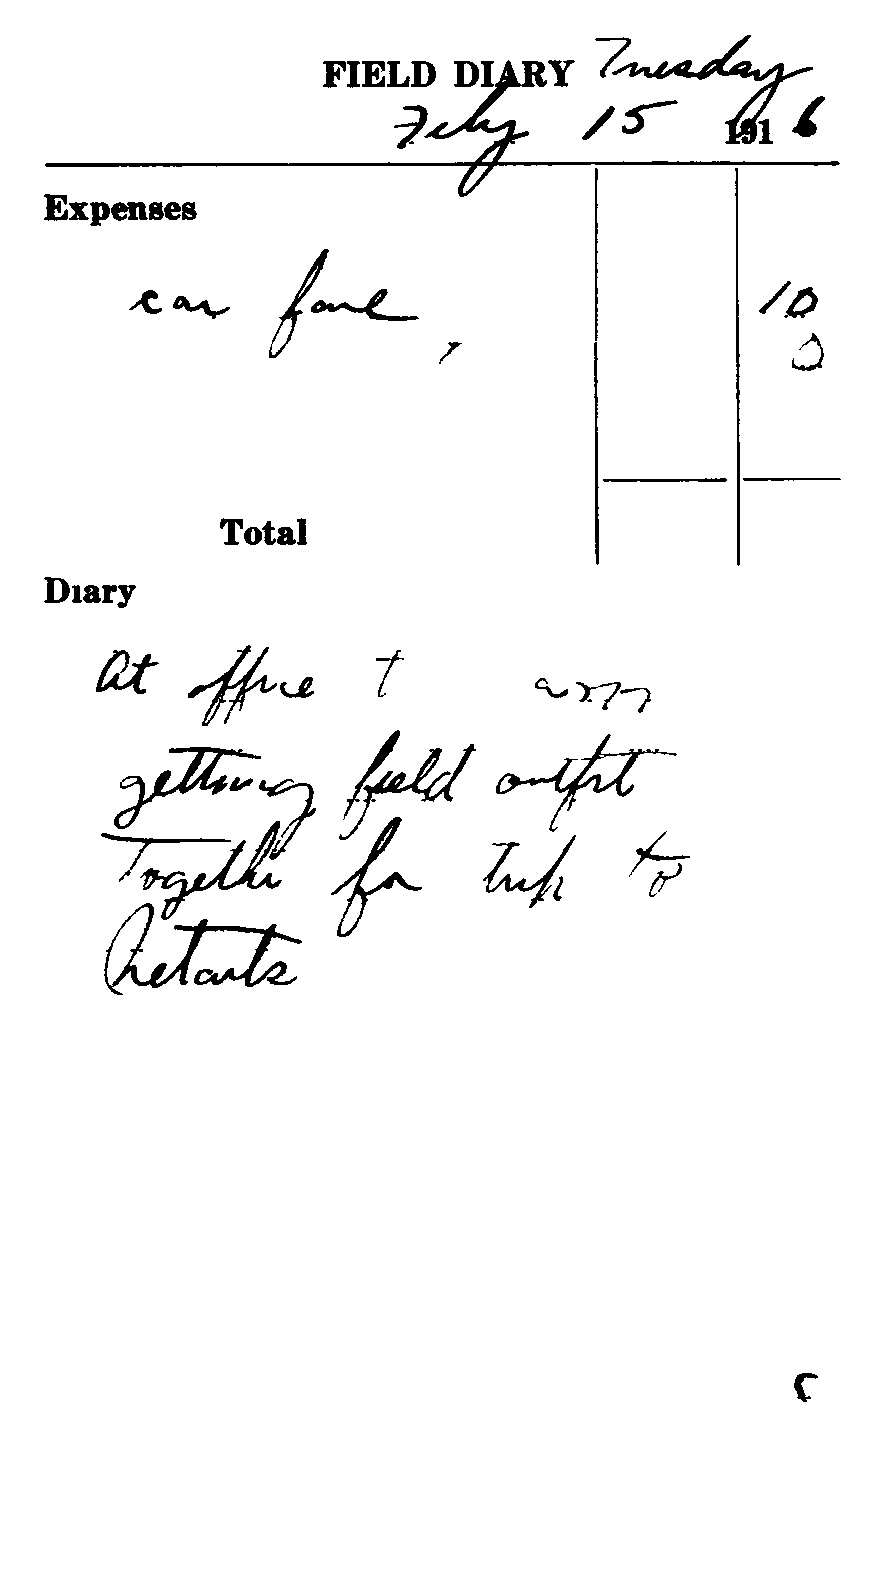 FIELD DIARY Tuesday
Feby 15 1916
Expenses
car fare 10
0
Total
Diary
At office +
getting field outfit
together for trip to
Netarts